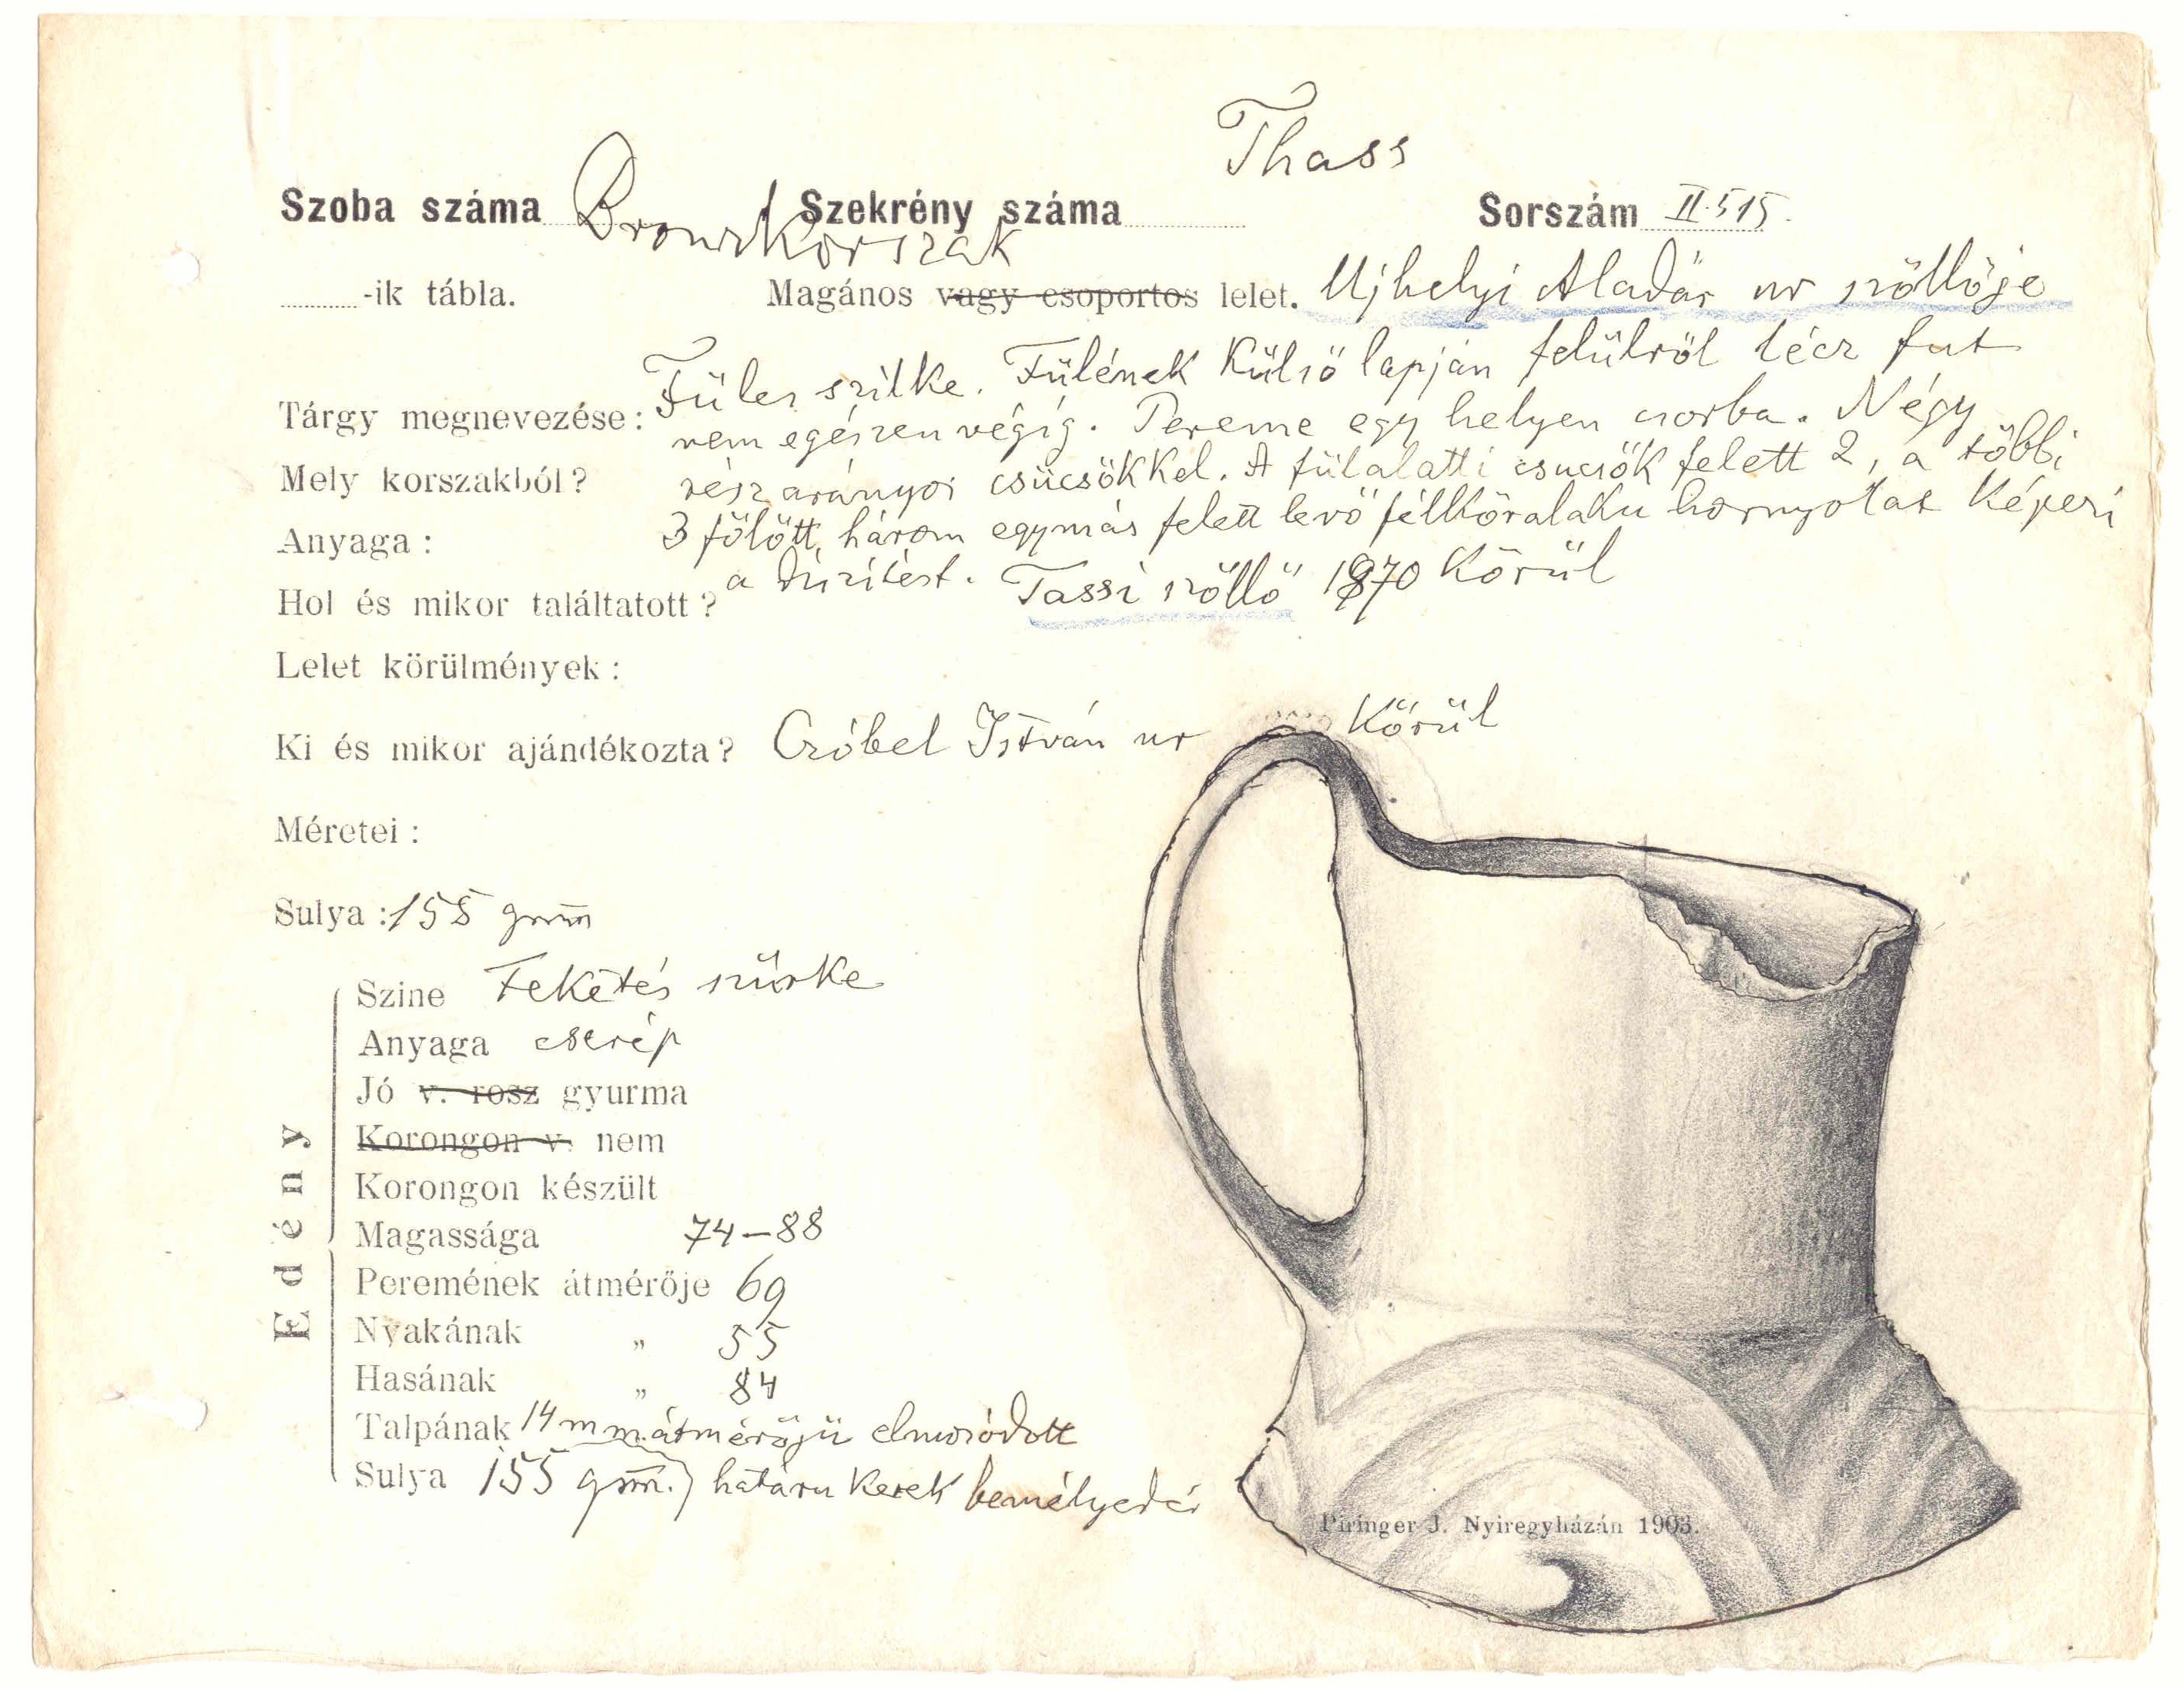 Thass
Szoba száma Bronzkorszak Szekrény száma Sorszám II.515.
-ik tábla. Magános vagy csoportos lelet. Ujhelyi Aladár ur szöllöje
Tárgy megnevezése: Füles szilke. Fülének külső lapján felülről lécz fut
nem egészen végig. Pereme egy helyen csorba. Négy
Mely korszakból? részarányos csücsökkel. A fülalatti csucsök felett 2, a többi
Anyaga: 3 fölött, három egymás felett levő félköralaku hornyolat képezi
a diszitést. Tassi szöllő 1870 körül
Hol és mikor találtatott?
Lelet körülmények:
Ki és mikor ajándékozta? Czóbel István ur körül
Méretei:
Sulya: 155 gmm
Edény
Szine Feketés szürke
Anyaga cserép
Jó v. rosz gyurma
Korongon v. nem
Korongon készült
Magassága 74–88
Peremének átmérője 69
Nyakának „ 55
Hasának „ 84
Talpának 14 mm. átmérőjü elmosódott
Sulya 155 gmm.) határu kerek bemélyedés
Piringer J. Nyiregyházán 1903.